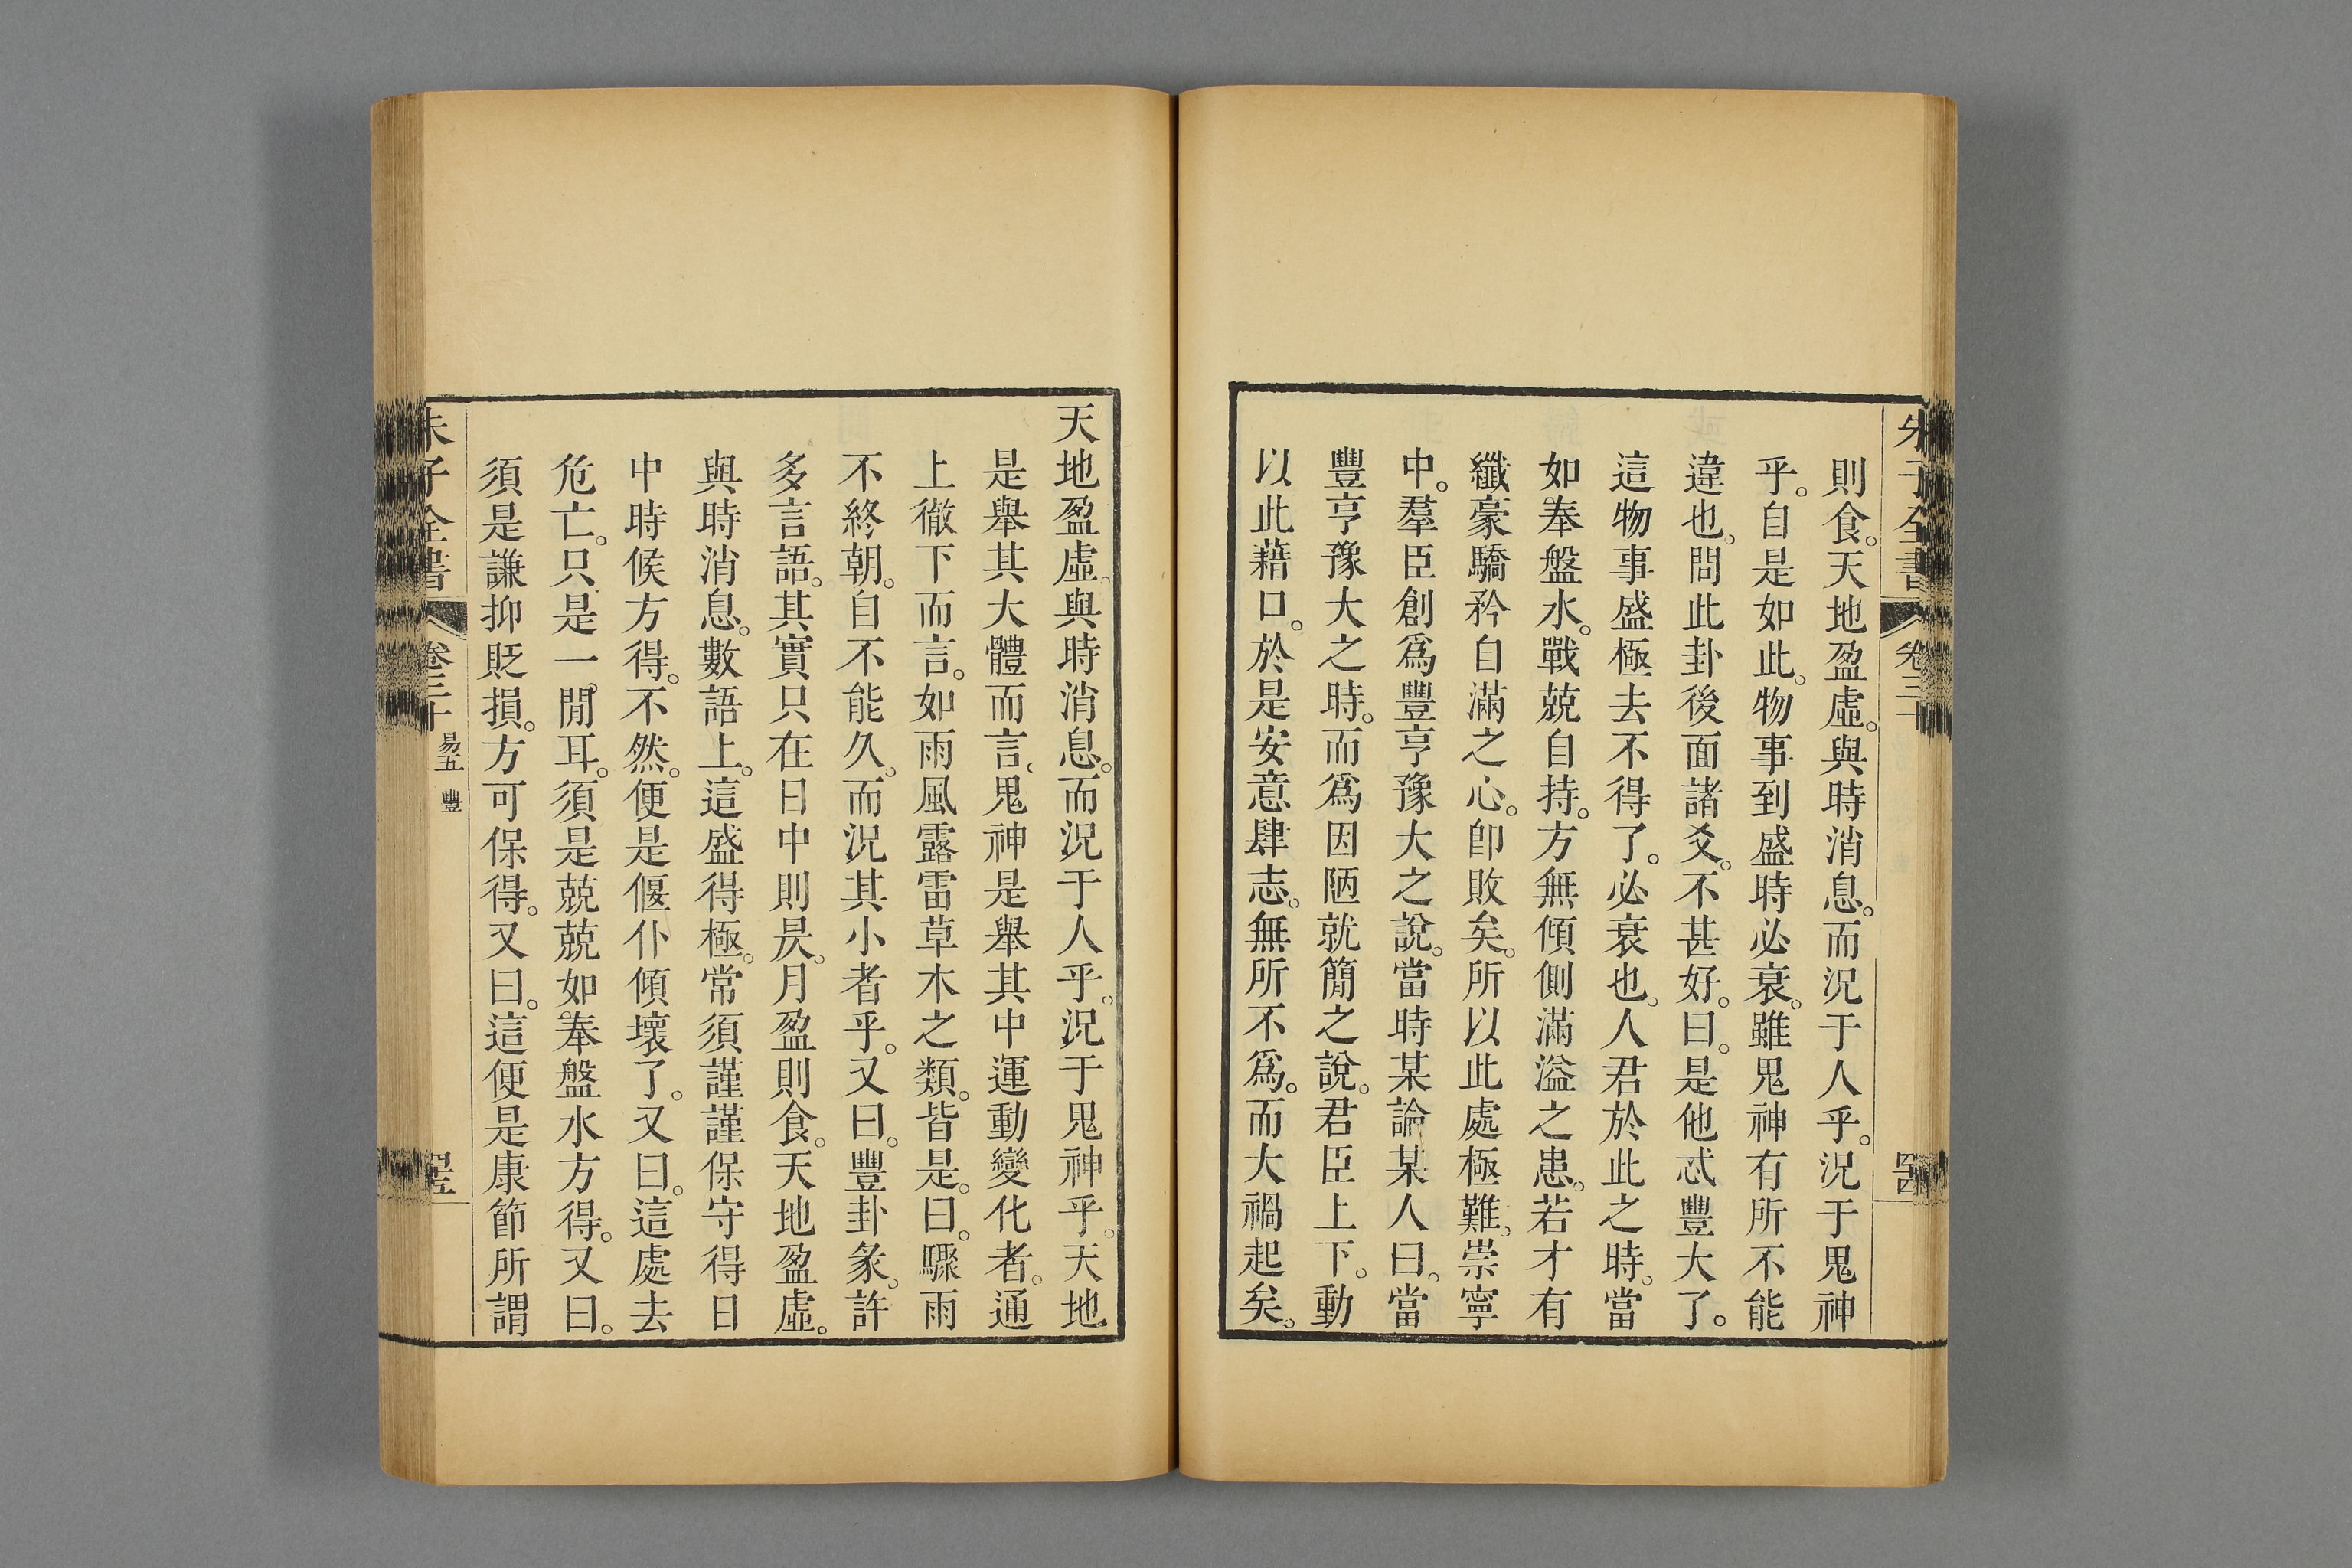 朱子全書 卷三十
則食。天地盈虛。與時消息。而況于人乎。況于鬼神
乎。自是如此。物事到盛時必衰。雖鬼神有所不能
違也。問此卦後面諸爻。不甚好。曰。是他忒豐大了。
這物事盛極去不得了。必衰也。人君於此之時。當
如奉盤水。戰兢自持。方無傾側滿溢之患。若才有
纖豪驕矜自滿之心。卽敗矣。所以此處極難。崇寧
中。羣臣創爲豐亨豫大之說。當時某論某人曰。當
豐亨豫大之時。而爲因陋就簡之說。君臣上下。動
以此藉口。於是安意肆志。無所不爲。而大禍起矣。
天地盈虛。與時消息。而況于人乎。況于鬼神乎。天地
是舉其大體而言。鬼神是舉其中運動變化者。通
上徹下而言。如雨風露雷草木之類。皆是。曰。驟雨
不終朝。自不能久。而況其小者乎。又曰。豐卦彖。許
多言語。其實只在日中則昃。月盈則食。天地盈虛。
與時消息。數語上。這盛得極。常須謹謹保守得日
中時候方得。不然。便是偃仆傾壞了。又曰。這處去
危亡。只是一閒耳。須是兢兢如奉盤水方得。又曰。
須是謙抑貶損。方可保得。又曰。這便是康節所謂
朱子全書 卷三十 易五 豐